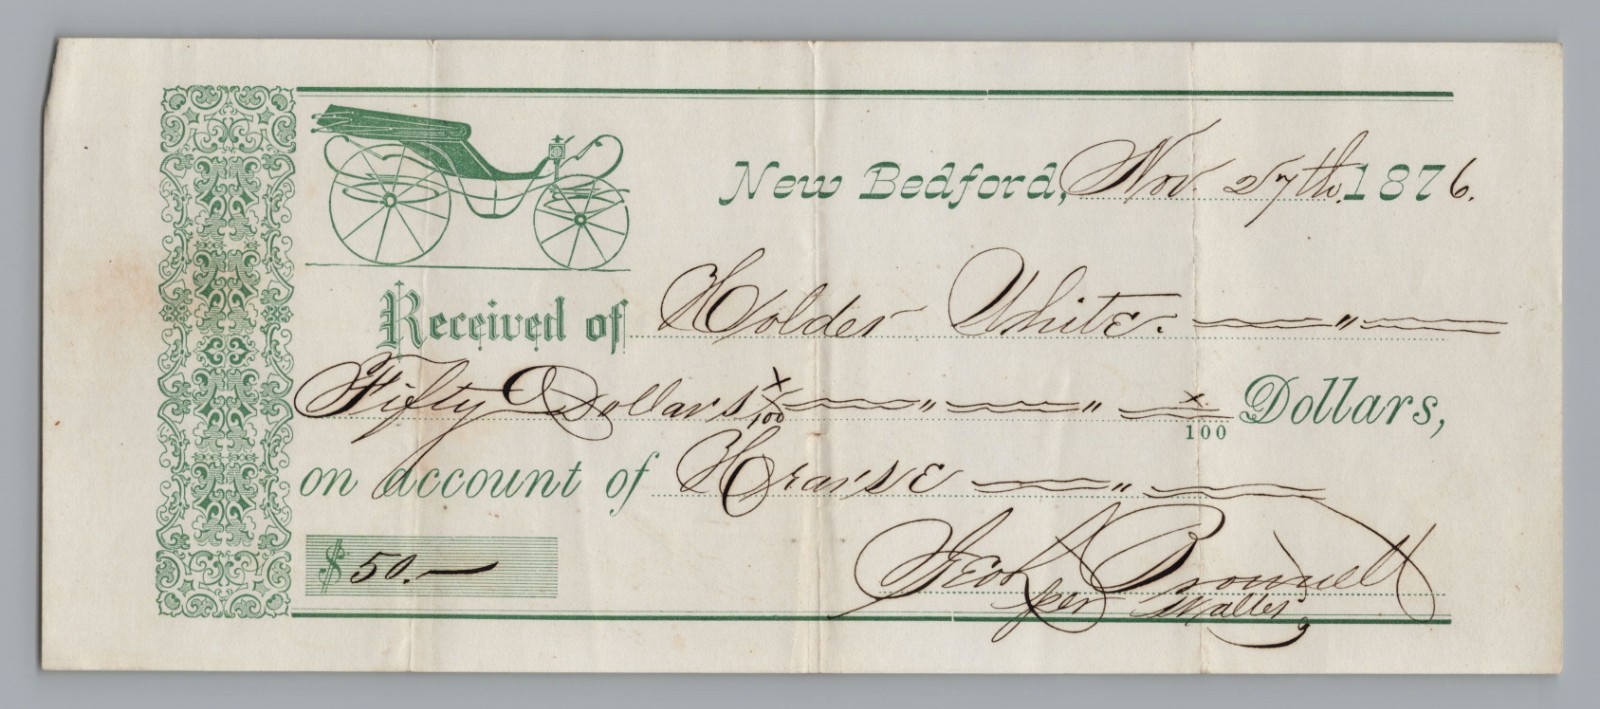 New Bedford, Nov. 27th. 1876.
Received of Holder White. " 
Fifty Dollars x/100 " " x/100 Dollars,
on account of Hearse "
$50.— Geo L Brownell
per Waller